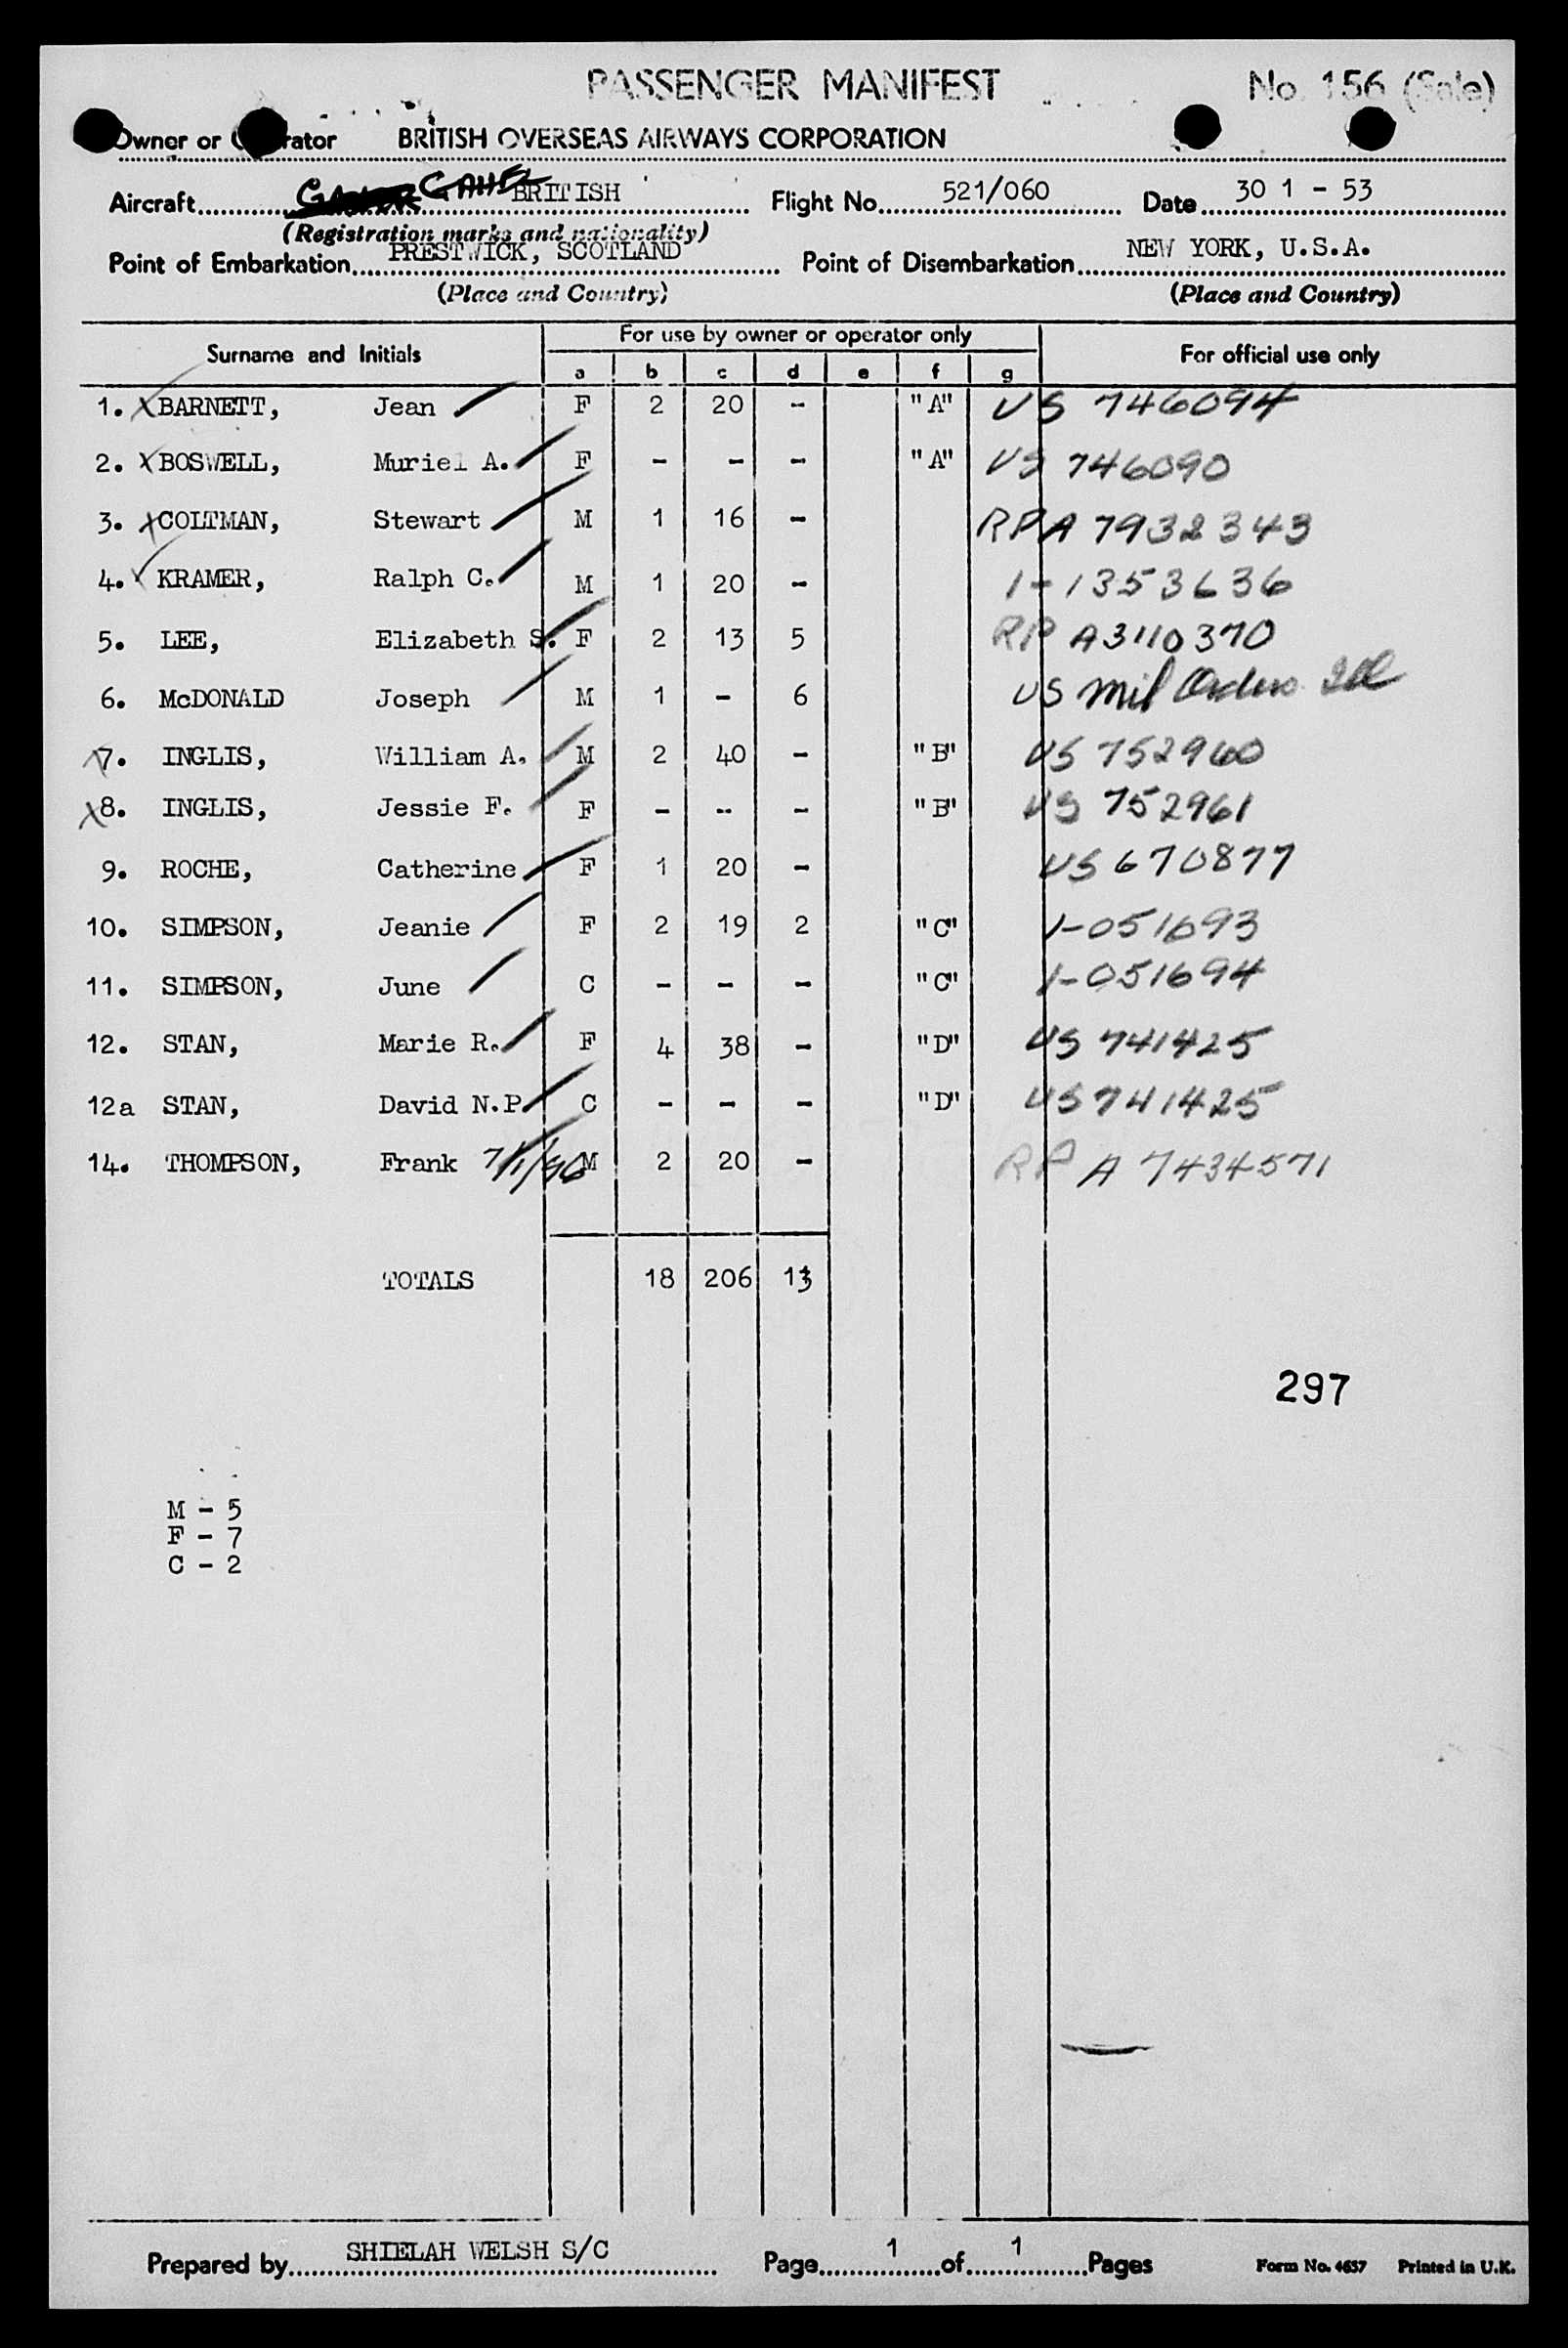 PASSENGER MANIFEST No. 156
Owner or BRITISH OVERSEAS AIRWAYS CORPORATION
Aircraft BRITISH Flight No. 521/060 Date 30 1 - 53
(Registration marks and nationality)
Point of Embarkation PRESTWICK, SCOTLAND Point of Disembarkation NEW YORK, U.S.A.
(Place and Country) (Place and Country)
For use by owner or operator only
Surname and Initials For official use only
a b c d e f g
1. X BARNETT, Jean F 2 20 - "A" US 746094
2. X BOSWELL, Muriel A. F - - - "A" US 746090
3. X COLTMAN, Stewart M 1 16 - RP A 7932343
4. KRAMER, Ralph C. M 1 20 - 1-1353636
5. LEE, Elizabeth S. F 2 13 5 RP A3110370
6. McDONALD Joseph M 1 - 6 US Mil Orders
7. INGLIS, William A. M 2 40 - "B" US 752960
X 8. INGLIS, Jessie F. F - - - "B" US 752961
9. ROCHE, Catherine F 1 20 - US 670877
10. SIMPSON, Jeanie F 2 19 2 "C" 1-051693
11. SIMPSON, June C - - - "C" 1-051694
12. STAN, Marie R. F 4 38 - "D" US 741425
12a STAN, David N.P. C - - - "D" US 741425
14. THOMPSON, Frank M 2 20 - RP A 7434571
TOTALS 18 206 13
297
M - 5
F - 7
C - 2
Prepared by SHIELAH WELSH S/C Page 1 of 1 Pages Form No. 4637 Printed in U.K.